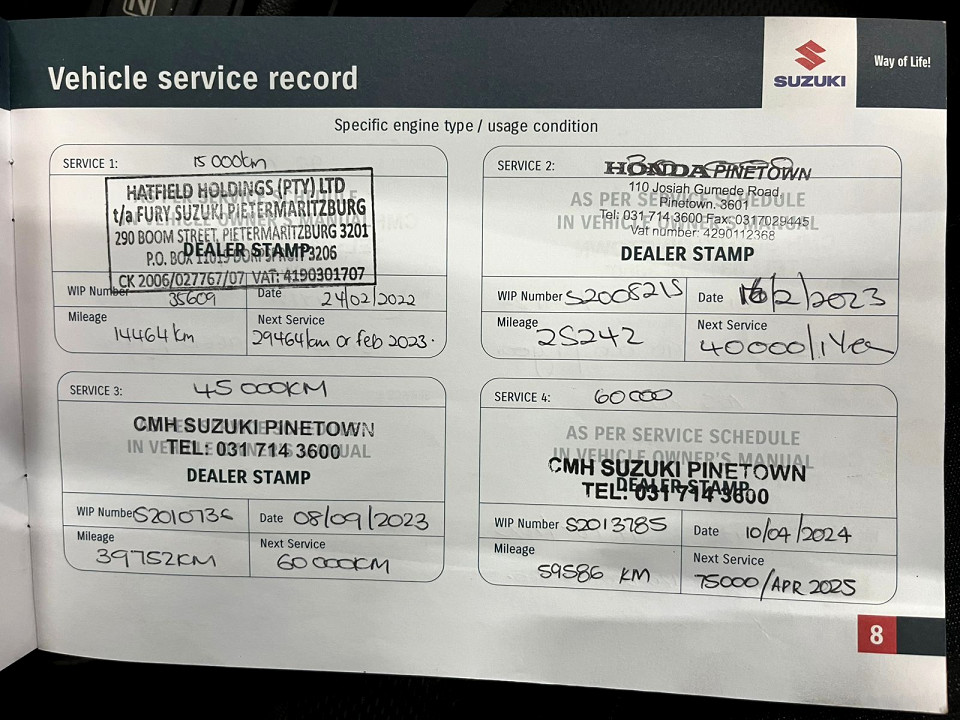 Vehicle service record
SUZUKI
Way of Life!
Specific engine type / usage condition
SERVICE 1: 15 000km
HATFIELD HOLDINGS (PTY) LTD
t/a FURY SUZUKI PIETERMARITZBURG
290 BOOM STREET, PIETERMARITZBURG 3201
P.O. BOX 11019 DORPSPRUIT 3206
DEALER STAMP
CK 2006/027767/07 VAT: 4190301707
WIP Number 35609
Date 24/02/2022
Mileage
14464 km
Next Service
29464km or feb 2023.
SERVICE 2:
HONDA PINETOWN
AS PER SERVICE SCHEDULE
110 Josiah Gumede Road,
Pinetown, 3601
IN VEHICLE OWNER'S MANUAL
Tel: 031 714 3600 Fax: 0317029445
Vat number: 4290112368
DEALER STAMP
WIP Number S2008215
Date 16/2/2023
Mileage
25242
Next Service
40000/1 Year
SERVICE 3: 45 000KM
CMH SUZUKI PINETOWN
IN VEHICLE OWNER'S MANUAL
TEL: 031 714 3600
DEALER STAMP
WIP Number S2010736
Date 08/09/2023
Mileage
39752KM
Next Service
60 000KM
SERVICE 4: 60 000
AS PER SERVICE SCHEDULE
IN VEHICLE OWNER'S MANUAL
CMH SUZUKI PINETOWN
DEALER STAMP
TEL: 031 714 3600
WIP Number S2013785
Date 10/04/2024
Mileage
59586 KM
Next Service
75000/APR 2025
8